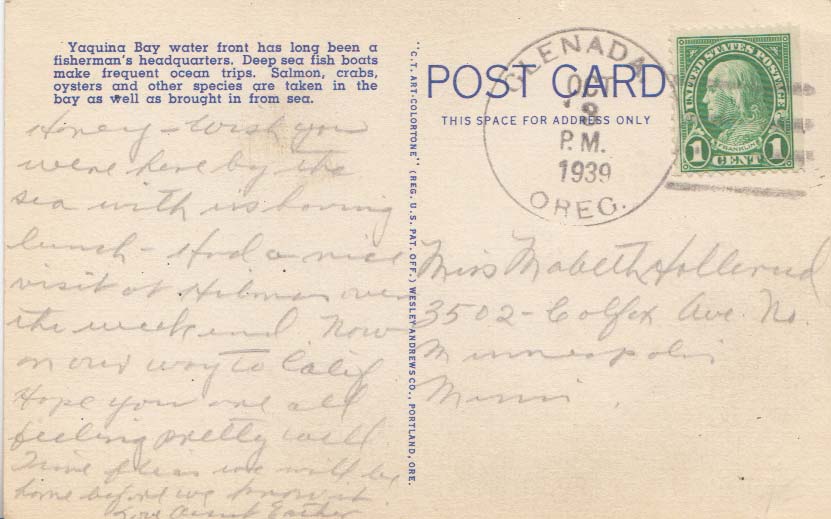 Yaquina Bay water front has long been a
fisherman's headquarters. Deep sea fish boats
make frequent ocean trips. Salmon, crabs,
oysters and other species are taken in the
bay as well as brought in from sea.
Honey – Wish you
were here by the
sea with us having
lunch – Had a nice
visit at Hilmas over
the weekend. Now
on our way to Calif
Hope you are all
feeling pretty well
Time flies we will be
home before we know it
Love Aunt Esther
"C.T. ART-COLORTONE" (REG. U.S. PAT. OFF.) WESLEY ANDREWS CO., PORTLAND, ORE.
POST CARD
THIS SPACE FOR ADDRESS ONLY
GLENADA
OCT
P.M.
1939
OREG.
UNITED STATES POSTAGE
FRANKLIN
1 CENT 1
Miss Mabeth
3502 – Colfax Ave. No.
Minneapolis
Minn.